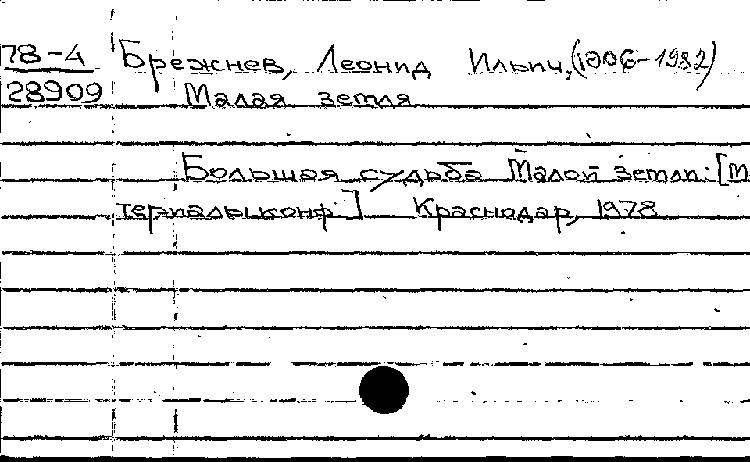 78-4 Брежнев, Леонид Ильич, (1906-1982)
28909 Малая земля
Большая судьба Малой земли: [Ма
териалы конф.] Краснодар, 1978